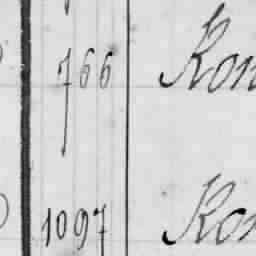 766 Kon
1097 Kon